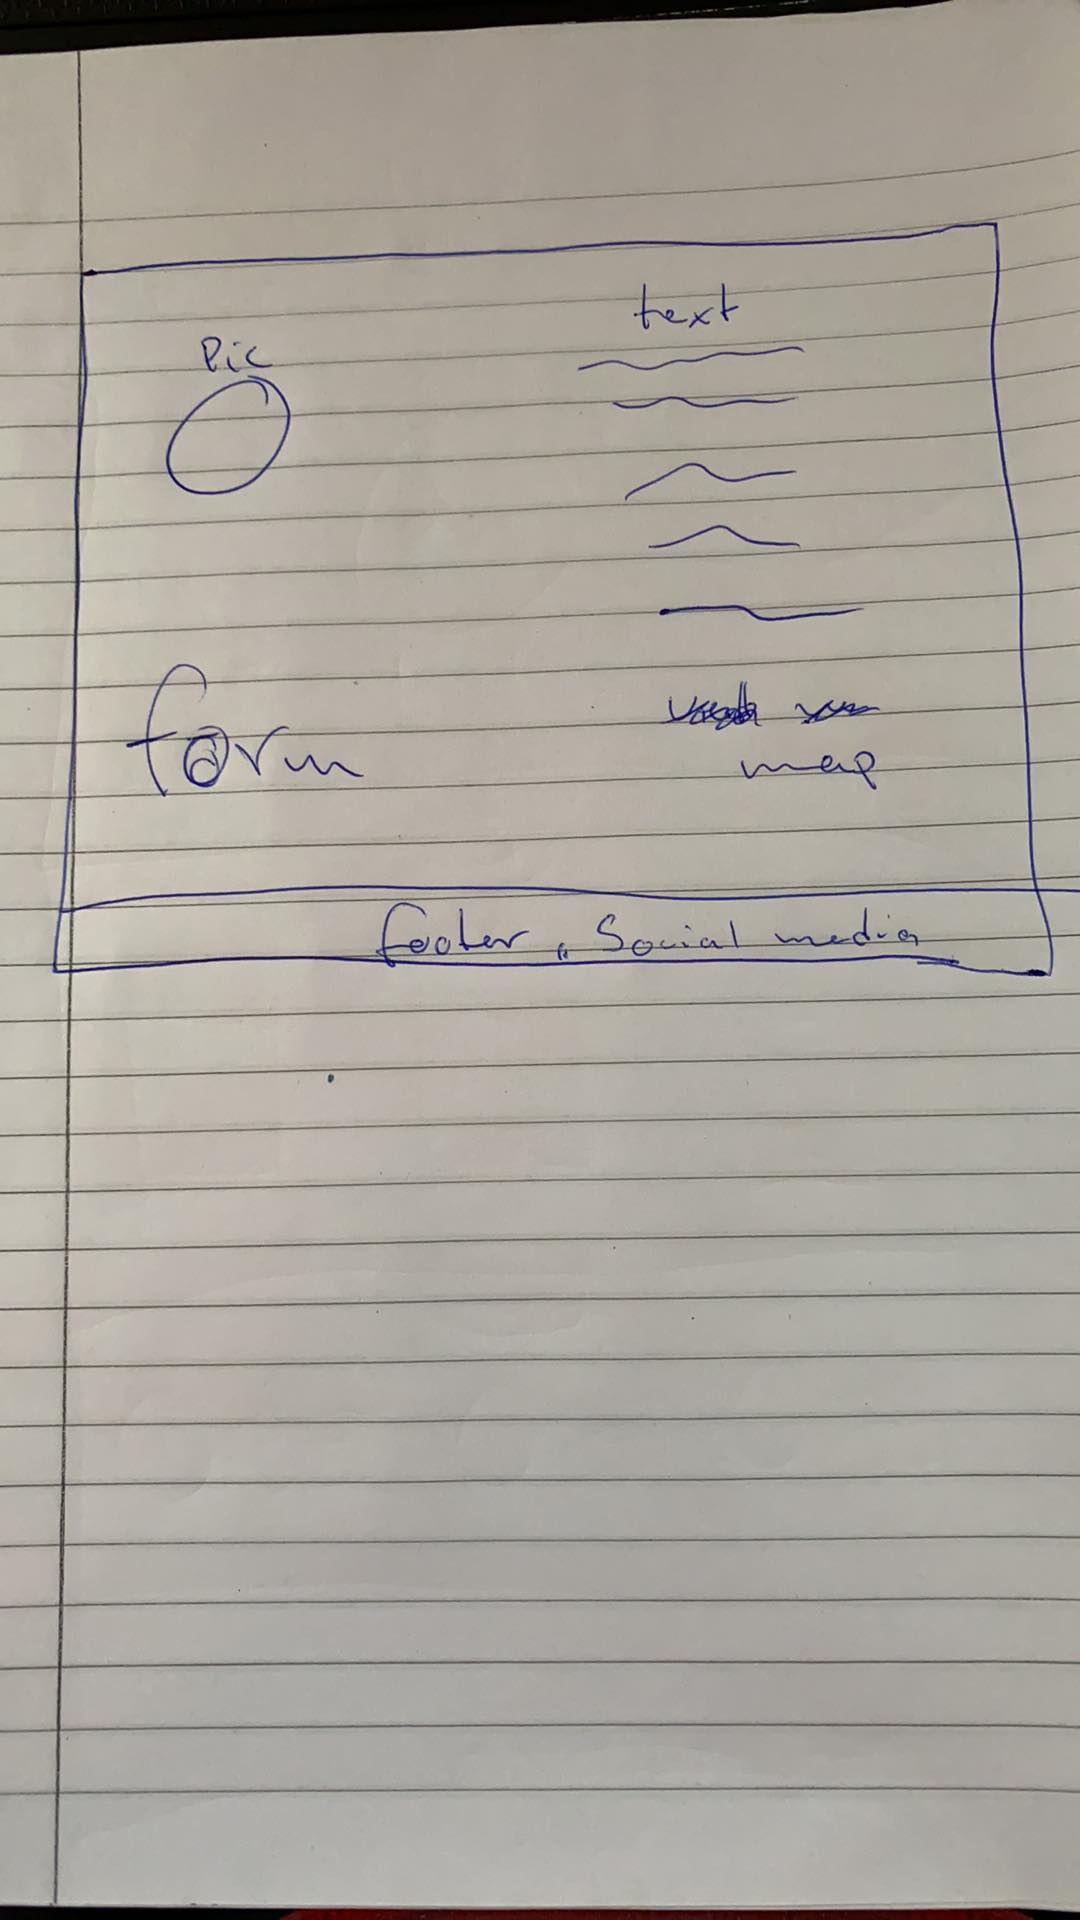 text
Pic
form
map
footer, Social media